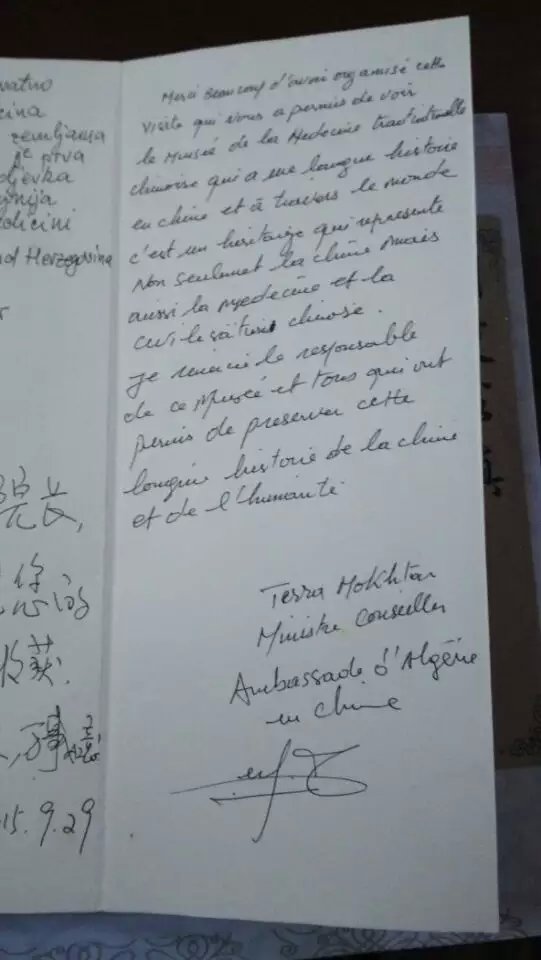 cina
zemljama
je prva
medicini
and Herzegovina
Merci Beaucoup d'avoir organisé cette
visite qui nous a permis de voir
le Musée de la Medecine traditionelle
chinoise qui a une longue histoire
en chine et à travers le monde
c'est un heritage qui represente
Non seulement la chine mais
aussi la medecine et la
civilisation chinoise.
Je remercie le responsable
de ce Musée et tous qui ont
permis de preserver cette
longue histoire de la chine
et de l'humanité
Terra Mokhtar
Ministre Conseiller
Ambassade d'Algérie
en chine
收获.
15.9.29